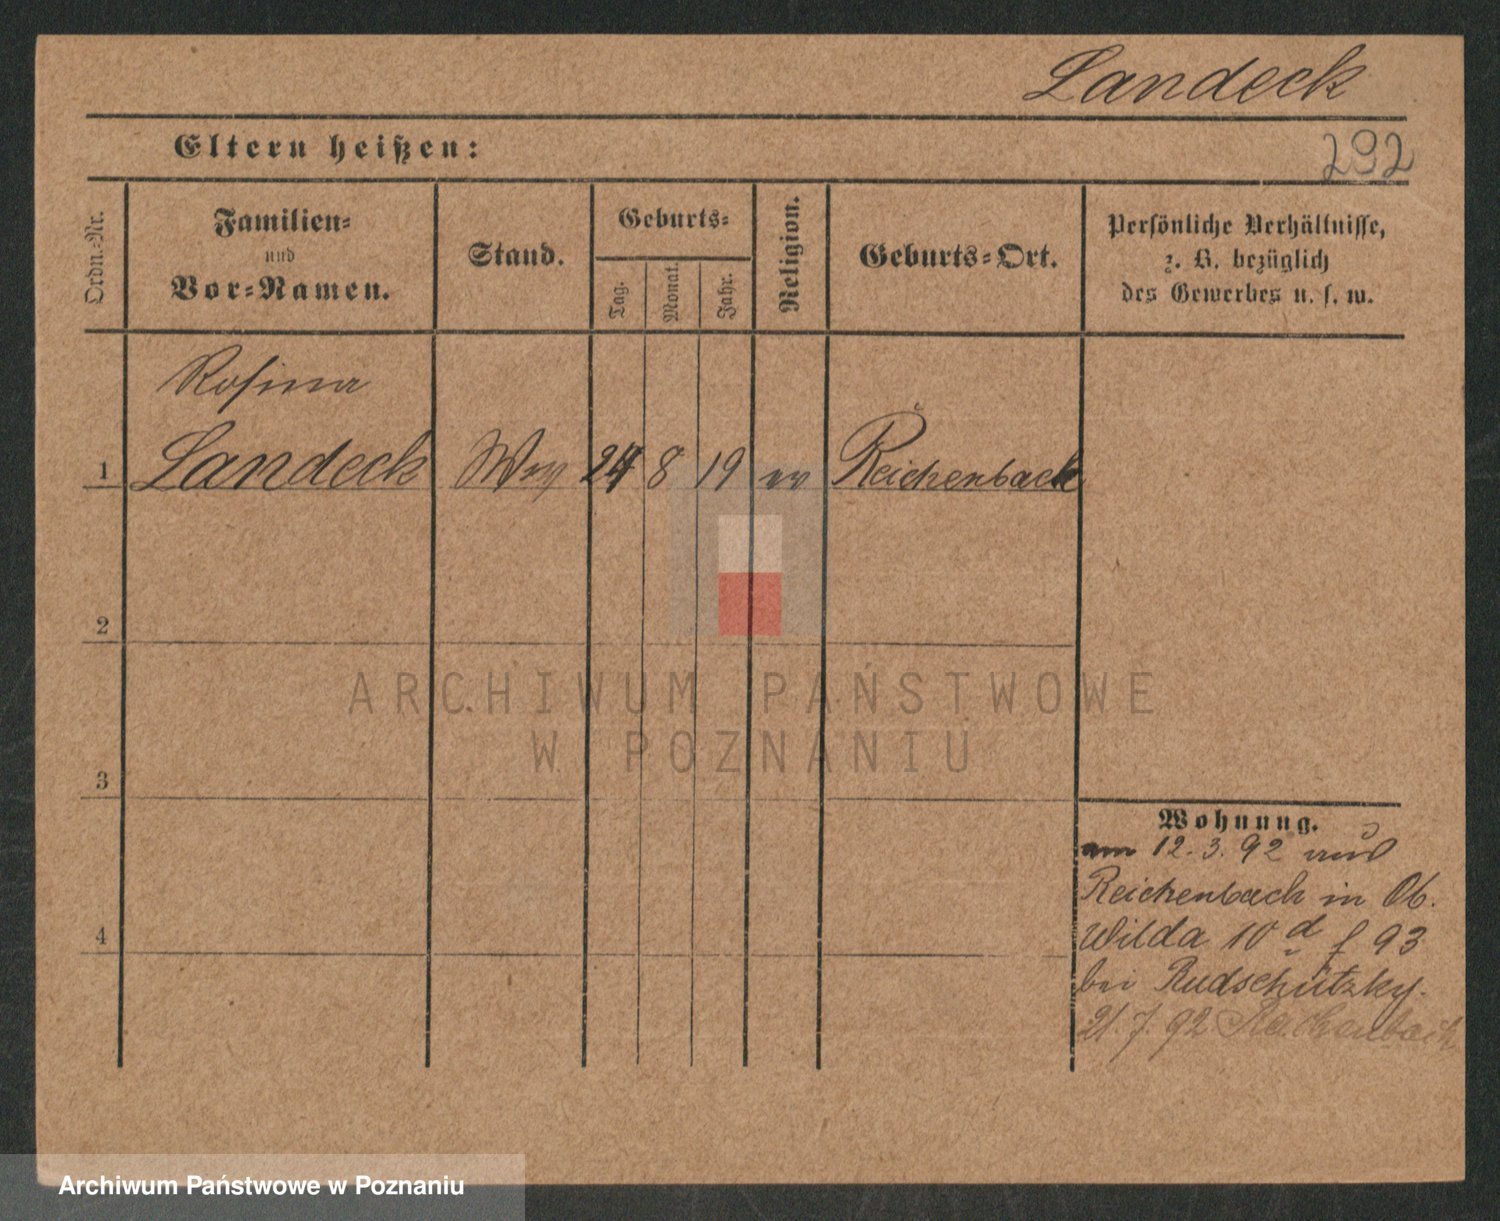 Landeck
Eltern heißen:
292
Ordn.-Nr.
Familien-
und
Vor-Namen.
Stand.
Geburts-
Tag.
Monat.
Jahr.
Religion.
Geburts-Ort.
Persönliche Verhältnisse,
z. B. bezüglich
des Gewerbes u. s. w.
Rosina
1 Landeck 24 8 19 ev Reichenbach
2
3
4
Wohnung.
am 12.3.92 aus
Reichenbach in Ob.
Wilda 10 d f 93
bei Rudschützky.
21.7.92 Reichenbach
ARCHIWUM PAŃSTWOWE
W POZNANIU
Archiwum Państwowe w Poznaniu